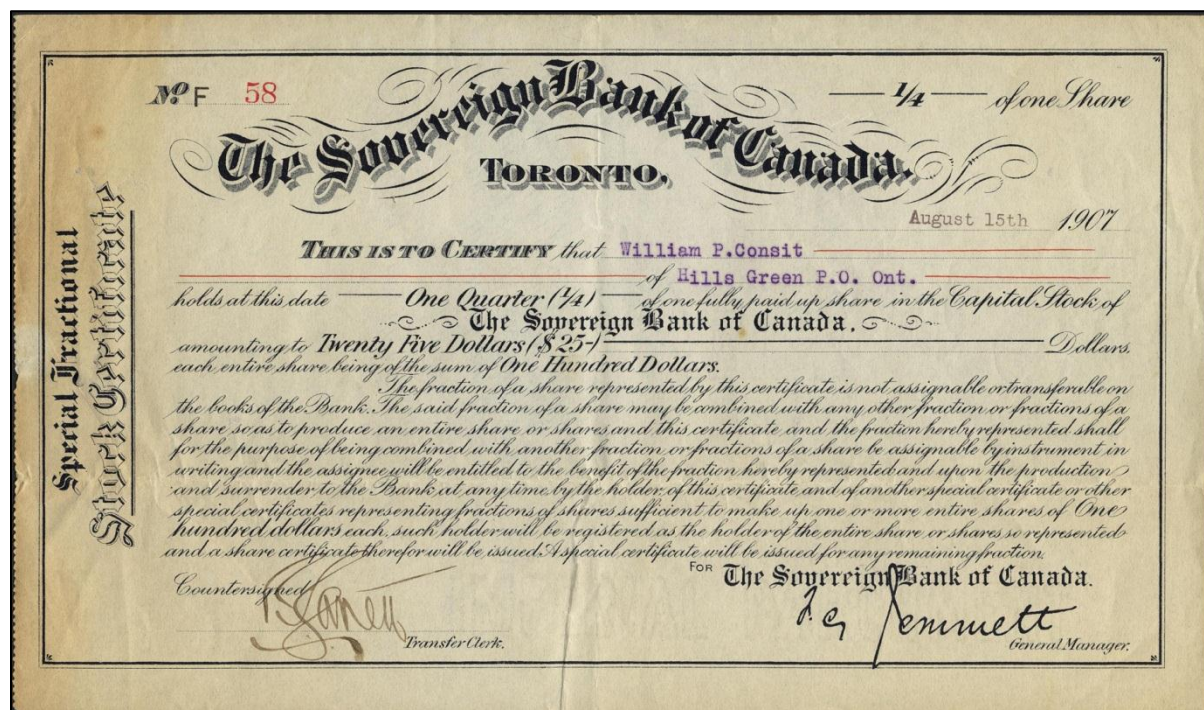 No F 58
1/4 of one Share
The Sovereign Bank of Canada.
TORONTO.
August 15th 1907
THIS IS TO CERTIFY that William P.Consit
of Hills Green P.O. Ont.
holds at this date One Quarter (1/4) of one fully paid up share in the Capital Stock of
The Sovereign Bank of Canada.
amounting to Twenty Five Dollars ($25-) Dollars.
each entire share being of the sum of One Hundred Dollars.
The fraction of a share represented by this certificate is not assignable or transferable on
the books of the Bank. The said fraction of a share may be combined with any other fraction or fractions of a
share so as to produce an entire share or shares and this certificate, and the fraction hereby represented shall
for the purpose of being combined with another fraction or fractions of a share be assignable by instrument in
writing and the assignee will be entitled to the benefit of the fraction hereby represented and upon the production
and surrender to the Bank at any time by the holder of this certificate and of another special certificate or other
special certificates representing fractions of shares sufficient to make up one or more entire shares of One
hundred dollars each, such holder will be registered as the holder of the entire share or shares so represented
and a share certificate therefor will be issued. A special certificate will be issued for any remaining fraction.
FOR The Sovereign Bank of Canada.
Countersigned
F. G. Jemmett
Transfer Clerk.
General Manager.
Special Fractional
Stock Certificate